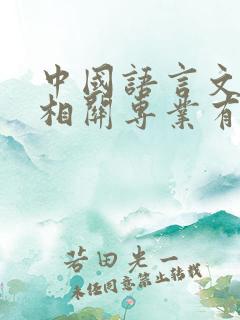 中國語言文
相關專業有
若田光一
未經同意禁止轉載